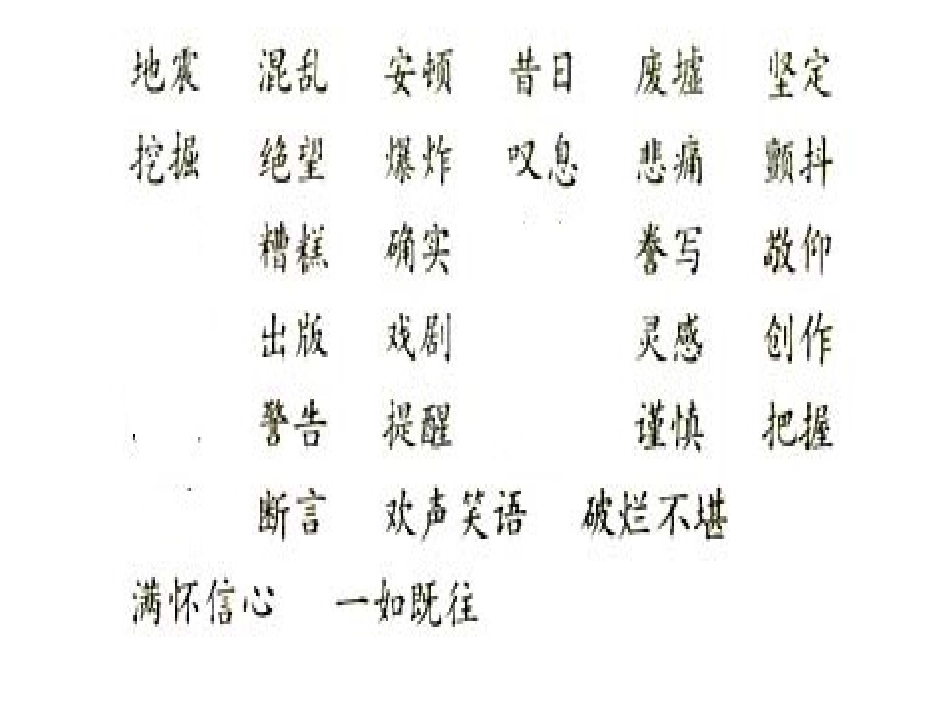 地震 混乱 安顿 昔日 废墟 坚定
挖掘 绝望 爆炸 叹息 悲痛 颤抖
糟糕 确实 誊写 敬仰
出版 戏剧 灵感 创作
警告 提醒 谨慎 把握
断言 欢声笑语 破烂不堪
满怀信心 一如既往